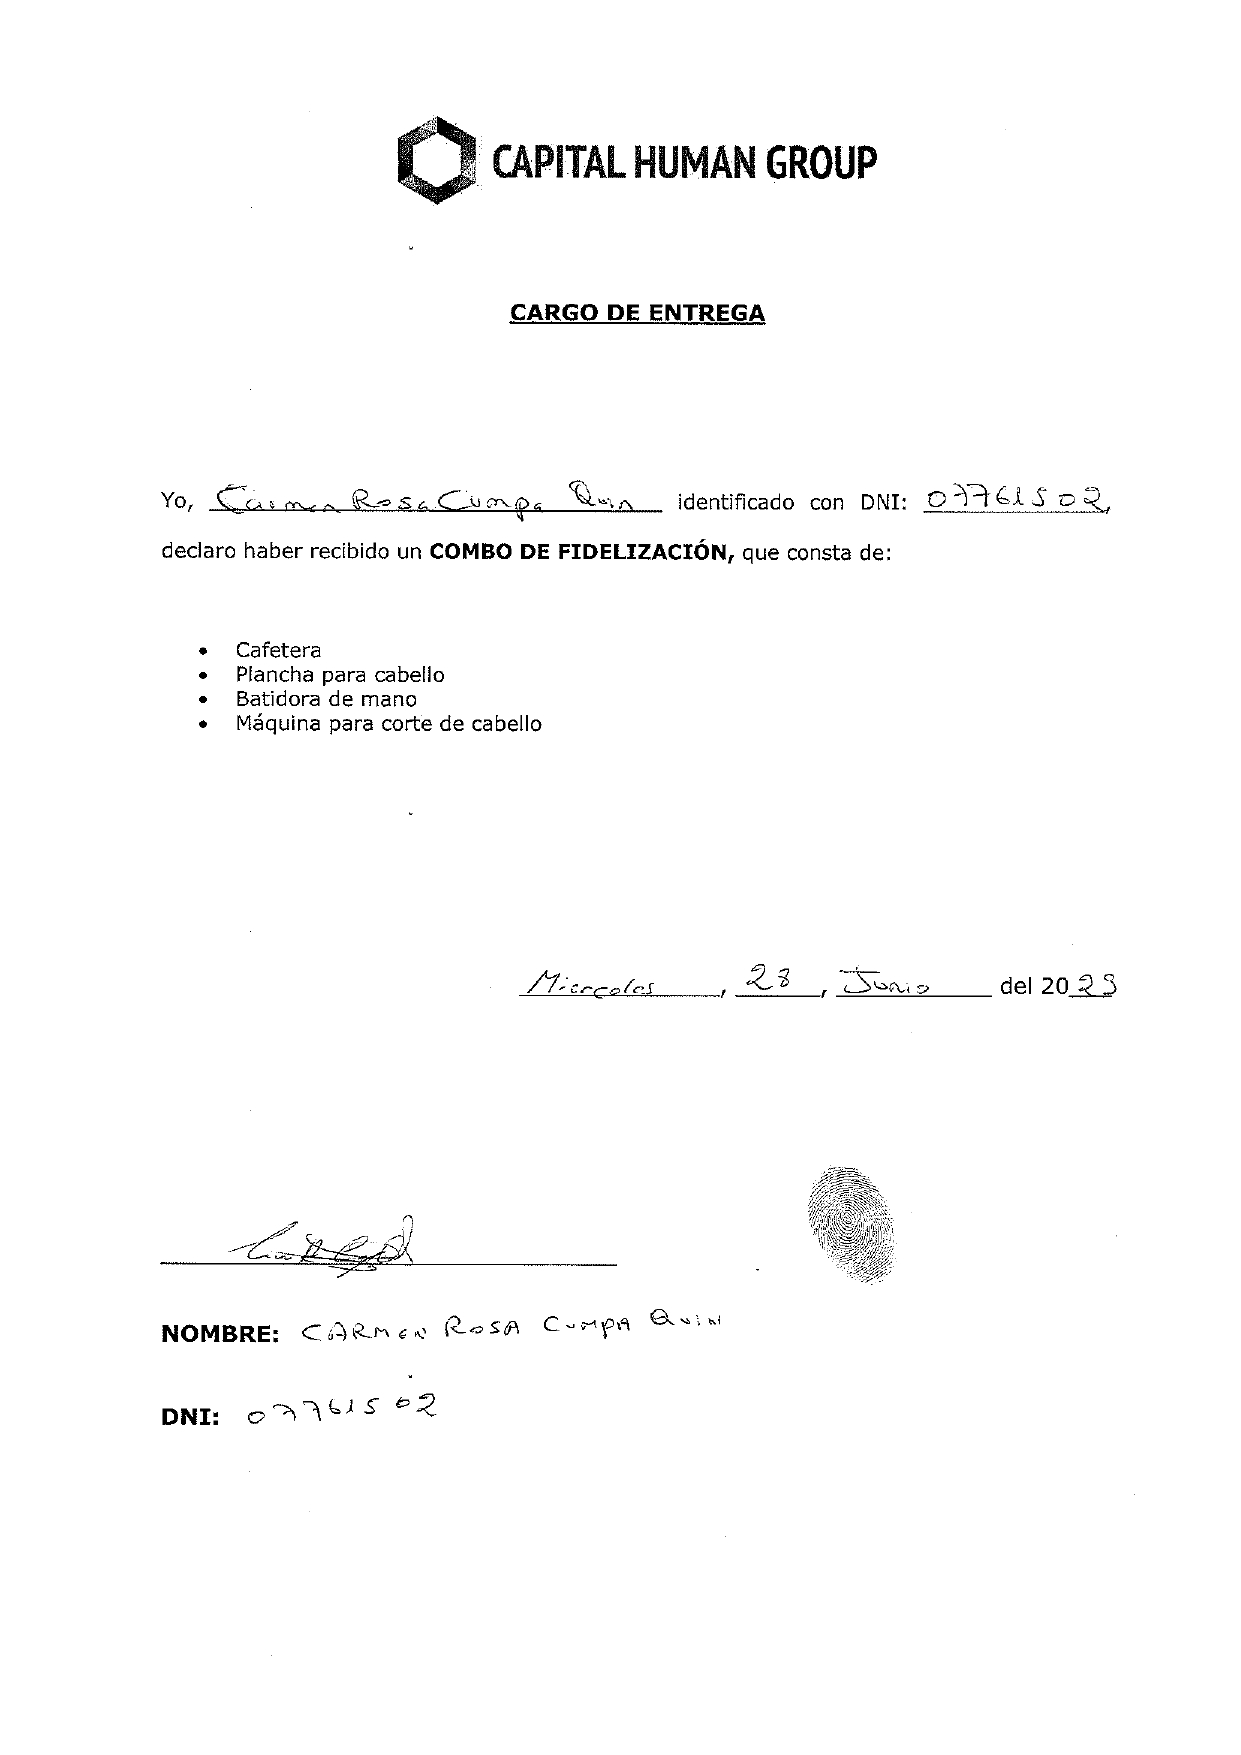 CAPITAL HUMAN GROUP
CARGO DE ENTREGA
Yo, Carmen Rosa Cumpa Quin identificado con DNI: 07761502,
declaro haber recibido un COMBO DE FIDELIZACIÓN, que consta de:
• Cafetera
• Plancha para cabello
• Batidora de mano
• Máquina para corte de cabello
Miercoles, 28, Junio del 2023
NOMBRE: CARMEN ROSA CUMPA QUIN
DNI: 07761502